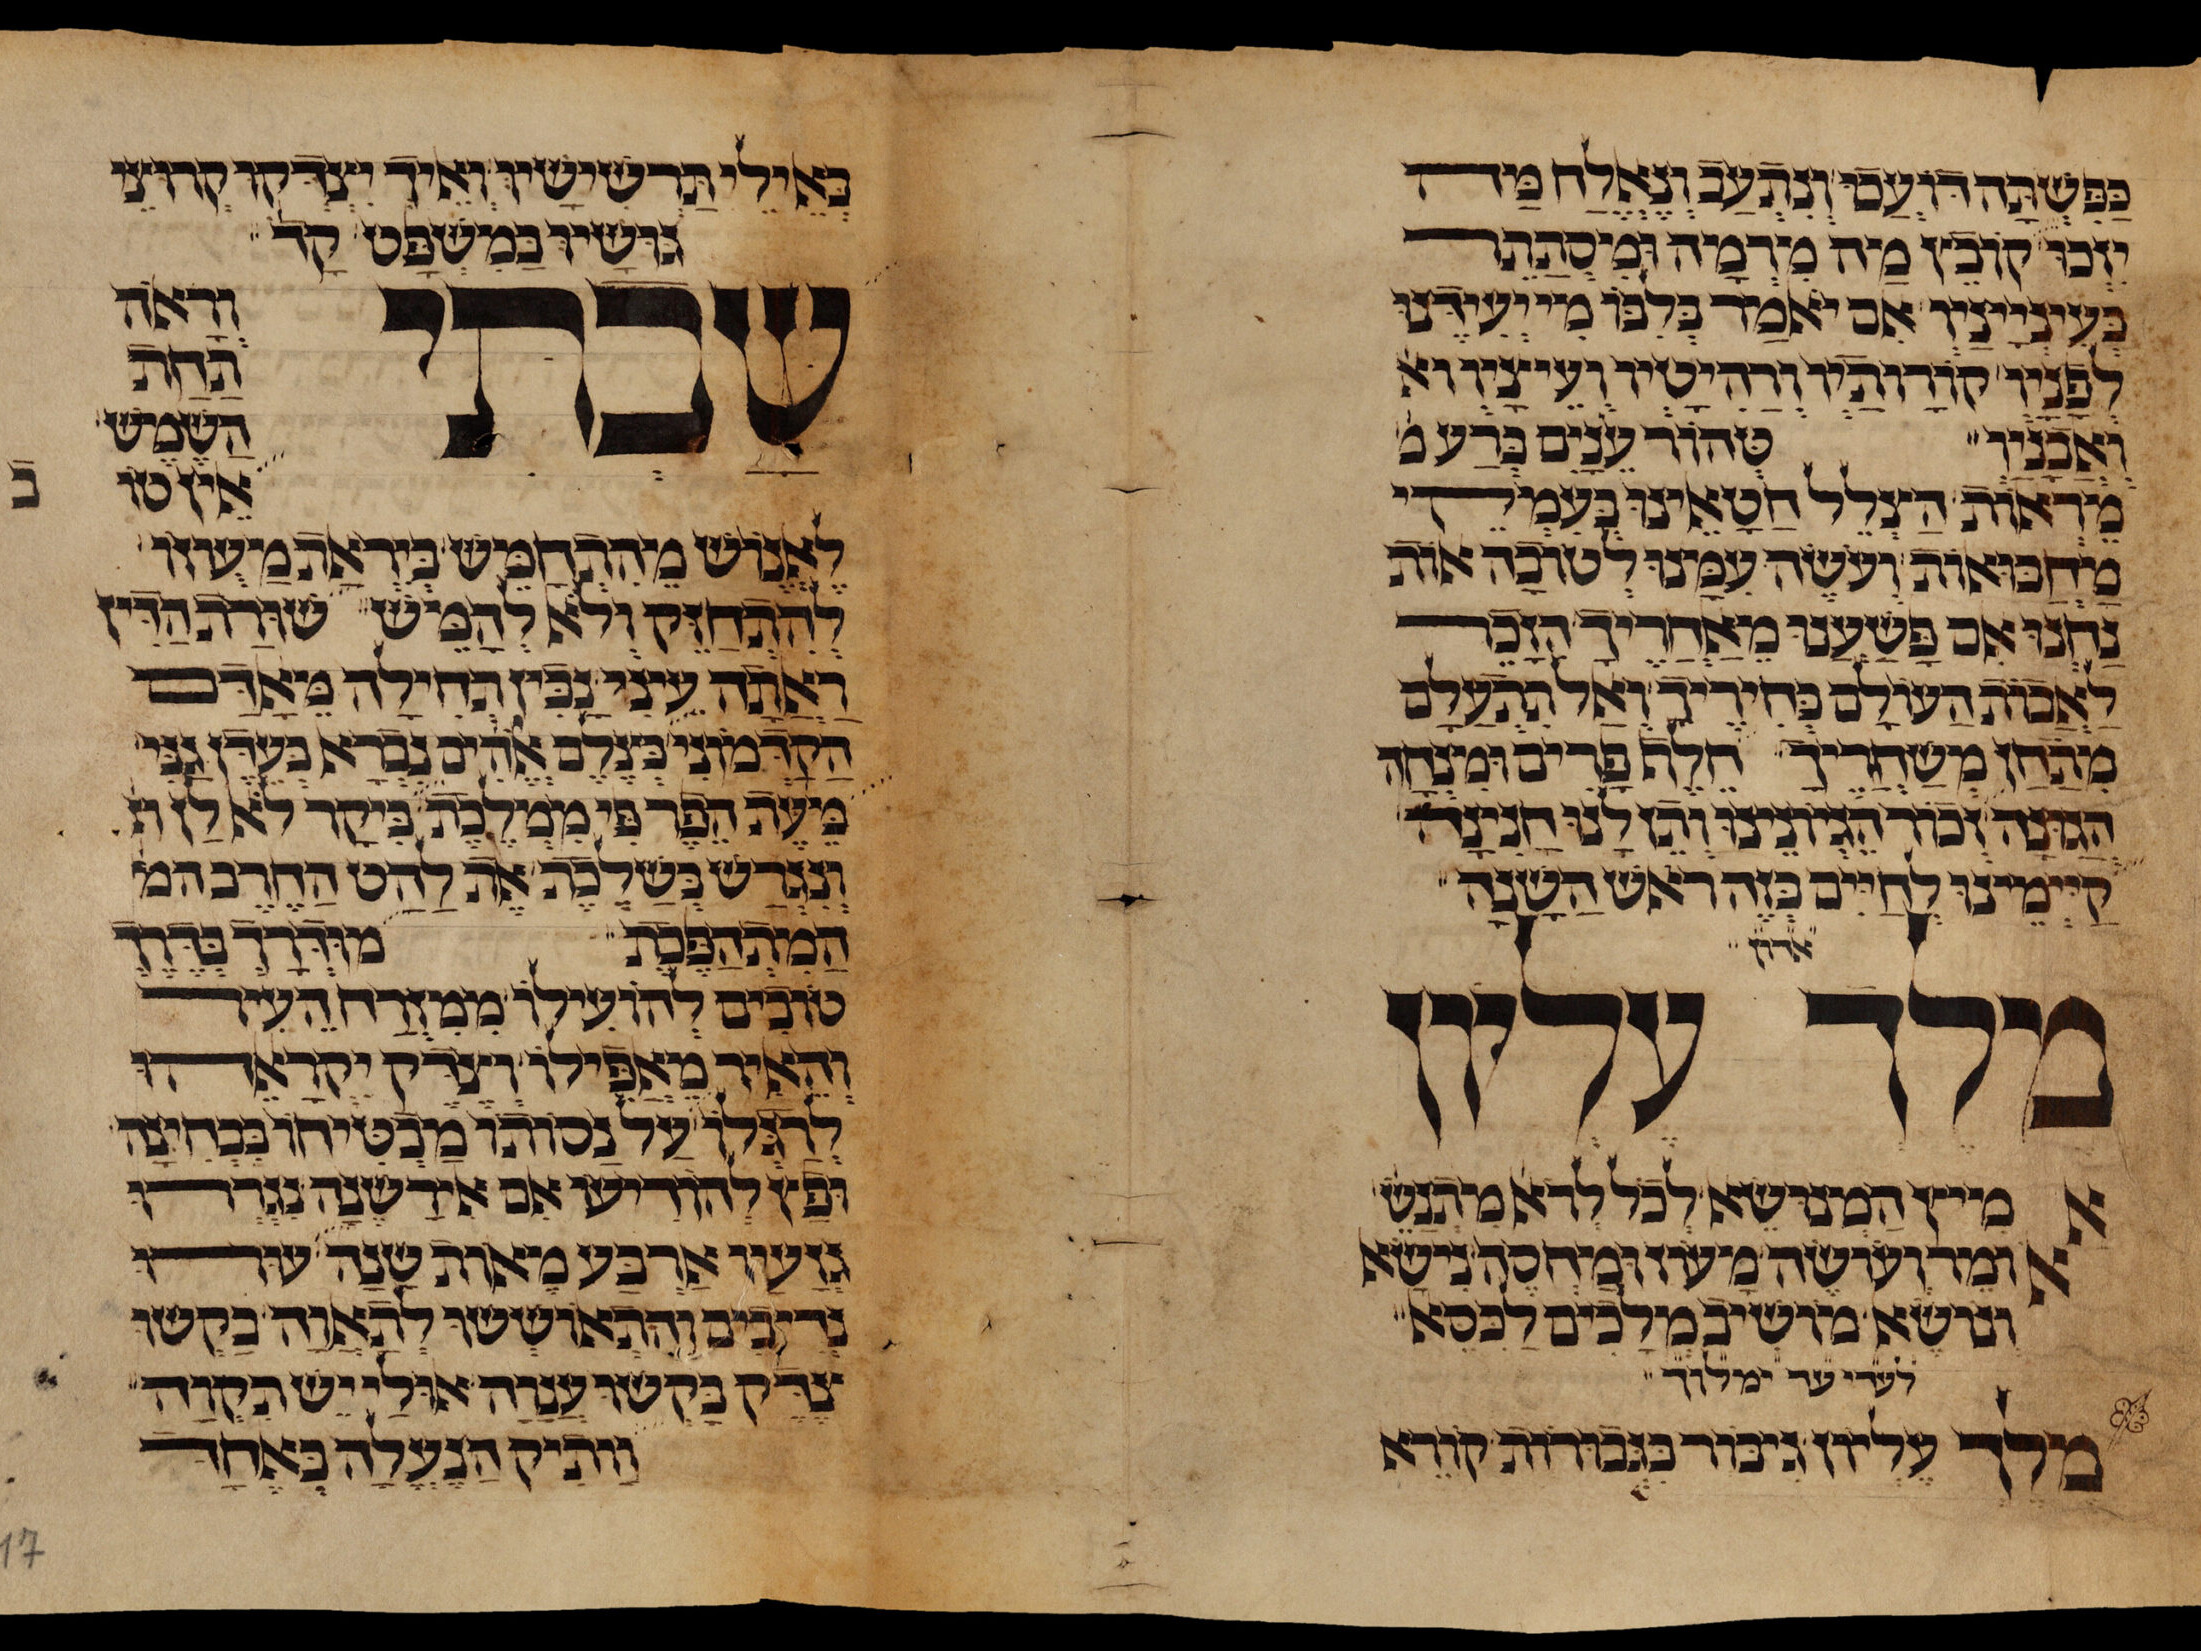 כַּפִּשְׁתָּה דּוֹעֲכוּ וְנִתְעָב וְנֶאֱלַח מַה
יִזְכּוּ קוֹבֵץ מַיִם מִיָּמָה וּמִי סְתָתָר
בְּעִינְיָינָיו אִם יֹאמַר בְּלִבּוֹ מִי יְעִידֶנּוּ
לְפָנָיו קוֹרוֹתָיו וְרָהִיטָיו וְעֵיצָיו וא
וַאֲבָנָיו טְהוֹר עֵינַיִם בְּרַע מ
מֵרְאוֹת הַצְלֵל חֲטָאֵינוּ בְּעִמְקֵי
מַחֲבוּאוֹת וַעֲשֵׂה עִמָּנוּ לְטוֹבָה אוֹת
נַחְנוּ אִם פָּשַׁעְנוּ מֵאַחֲרֶיךָ הַזְכֵּר
לְאָבוֹת הָעוֹלָם בְּחִירֶיךָ וְאַל תִּתְעַלָּם
מִתַּחַן מְשַׁחֲרֶיךָ חֵלֶף פָּרִים וּמִנְחָה
הֲגוּנָה זְכוֹר הֶגְיוֹנֵינוּ וְתֵן לָנוּ חֲנִינָה
קַיְּימֵינוּ לְחַיִּים בְּזֶה רֹאשׁ הַשָּׁנָה
ארון
מֶלֶךְ עֶלְיוֹן
אַמִּיץ הַמְנוּשֵּׂא לְכָל לְרֹאשׁ מִתְנַשֵּׂא
אוֹמֵר וְעוֹשֶׂה מָעוֹז וּמַחְסֶה נִישָּׂא
וְנוֹשֵׂא מוֹשִׁיב מְלָכִים לַכִּסֵּא
לעדי עד ימלוך
מֶלֶךְ עֶלְיוֹן גִּיבּוֹר בִּגְבוּרוֹת קוֹרֵא
בְּאֵילֵי תַרְשִׁישָׁיו וְאֵיךְ יִצְדְּקוּ קְרוּצֵי
גּוּשָׁיו בַּמִּשְׁפָּט קָדֹ
שַׁבְתִּי וְרָאֹה
תַּחַת
הַשֶּׁמֶשׁ
אֵין טו
לֶאֱנוֹשׁ מֵהִתְחַמֵּשׁ בְּיִרְאַת מָעוּזּוֹ
לְהִתְחַזֵּק וְלֹא לְהָמִישׁ שׁוּרַת הַדִּין
רָאֲתָה עֵינִי נָבִין תְּחִילָּה מֵאָדָם
הַקַּדְמוֹנִי בְּצֶלֶם אֱלֹהִים נִבְרָא בְּעֵדֶן גַּנִּי
בְּעֵת הֵפֵר פִּי מַמְלֶכֶת בִּיקָר לֹא לָן ת
וְנִגְרַשׁ בְּשַׁלֶּכֶת אֵת לַהַט הַחֶרֶב המ
הַמִּתְהַפֶּכֶת מוּדְרָךְ בְּדֶרֶךְ
טוֹבִים לְהוֹעִילוֹ מִמִּזְרָח הֵעִיר
וְהֵאִיר מַאֲפֵילוֹ וְצֶדֶק יִקְרָאֵהוּ
לְרַגְלוֹ עַל נַסּוֹתוֹ מִבְטִיחוֹ בִּבְחִינָה
וּפָץ לְהוֹדִיעוֹ אִם אֵידַע שֶׁנָּה נִגְזְרוּ
גִזְעוֹ אַרְבַּע מֵאוֹת שָׁנָה עוּרוּ
נְדִיבִים וְהִתְאוֹשְׁשׁוּ לְתַאֲוָה בַּקְּשׁוּ
צֶדֶק בַּקְּשׁוּ עֲנָוָה אוּלַי יֵשׁ תִּקְוָה
וָותִיק הַנַּעֲלָה בְּאֶחָד
ב
17